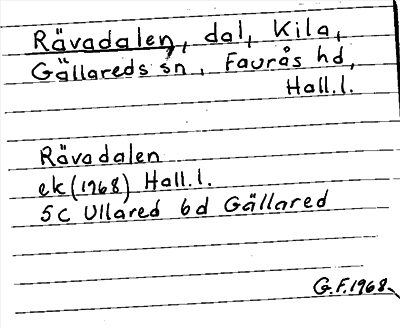 Rävadalen, dal, Kila,
Gällareds sn, Faurås hd,
Hall.l.
Rävadalen
ek (1968) Hall.l.
5C Ullared 6d Gällared
G.F. 1968